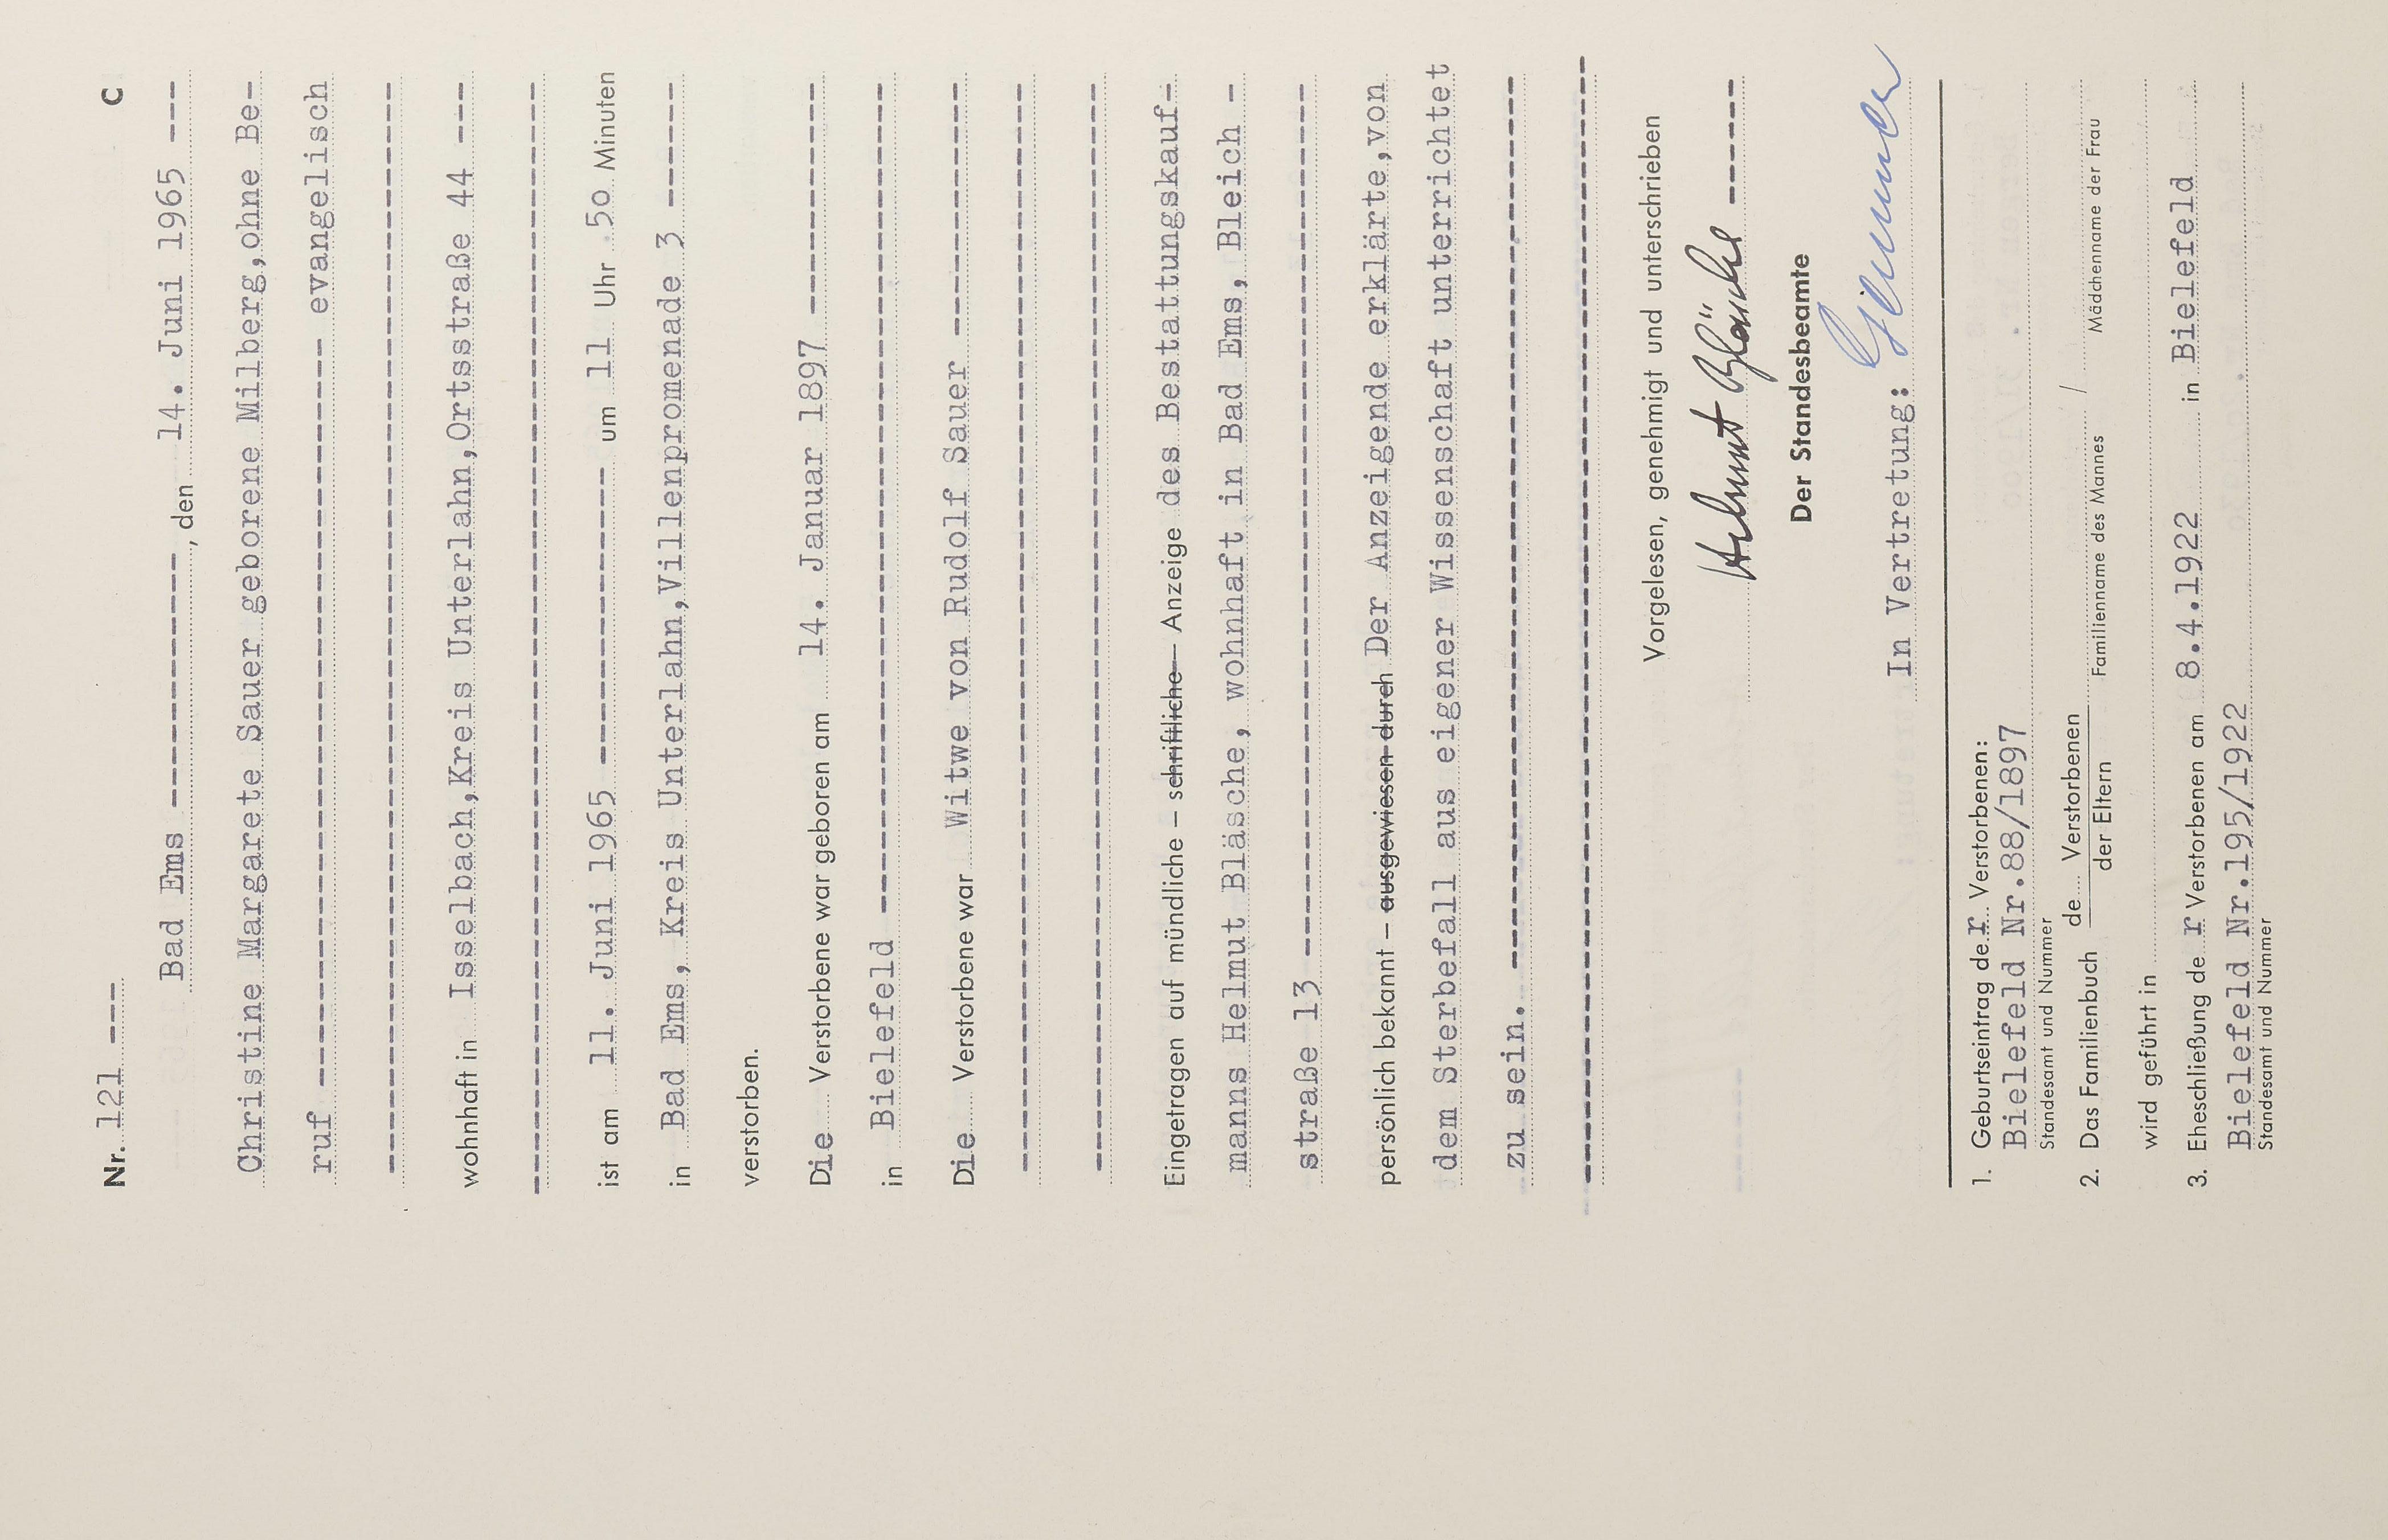 Nr. 121 --- C
Bad Ems ------------, den 14. Juni 1965 ---
Christine Margarete Sauer geborene Milberg,ohne Be-
ruf ------------------------------------ evangelisch
wohnhaft in Isselbach,Kreis Unterlahn,Ortsstraße 44 ---
ist am 11. Juni 1965 -------------- um 11 Uhr 50 Minuten
in Bad Ems, Kreis Unterlahn,Villenpromenade 3 ------
verstorben.
Die Verstorbene war geboren am 14. Januar 1897 -----------
in Bielefeld ----------------------------------------
Die Verstorbene war Witwe von Rudolf Sauer ------------
Eingetragen auf mündliche – schriftliche – Anzeige des Bestattungskauf-
manns Helmut Bläsche, wohnhaft in Bad Ems, Bleich -
straße 13 ------------------------------------------
persönlich bekannt – ausgewiesen durch Der Anzeigende erklärte,von
dem Sterbefall aus eigener Wissenschaft unterrichtet
zu sein. -------------------------------------------
Vorgelesen, genehmigt und unterschrieben
Helmut Bläsche ------
Der Standesbeamte
In Vertretung:
1. Geburtseintrag der Verstorbenen:
Bielefeld Nr.88/1897
Standesamt und Nummer
2. Das Familienbuch de Verstorbenen der Eltern /
Familienname des Mannes Mädchenname der Frau
wird geführt in
3. Eheschließung der Verstorbenen am 8.4.1922 in Bielefeld
Bielefeld Nr.195/1922
Standesamt und Nummer